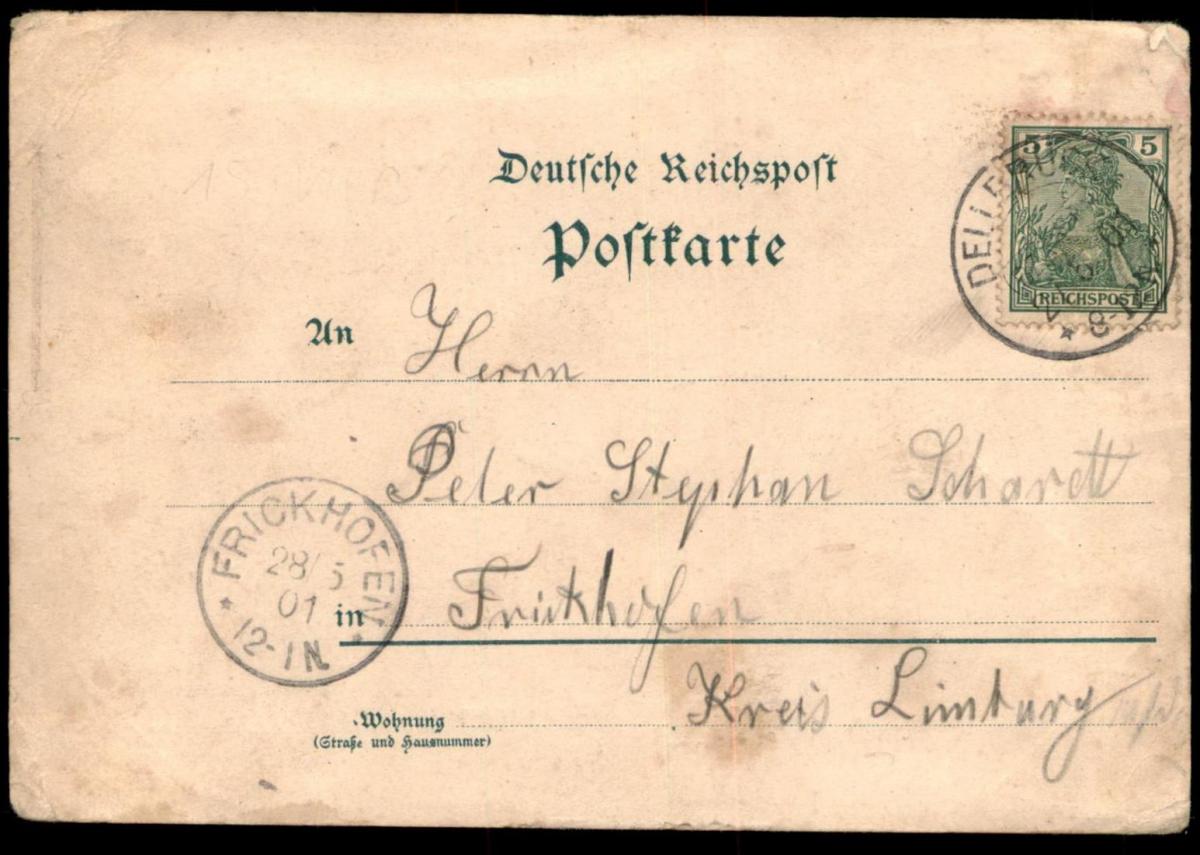 Deutsche Reichspost
Postkarte
5 5
REICHSPOST
01
An Herrn
Peter Stephan Schardt
FRICKHOFEN
28/5
01
12-1N.
in Frickhofen
Kreis Limburg
Wohnung
(Straße und Hausnummer)